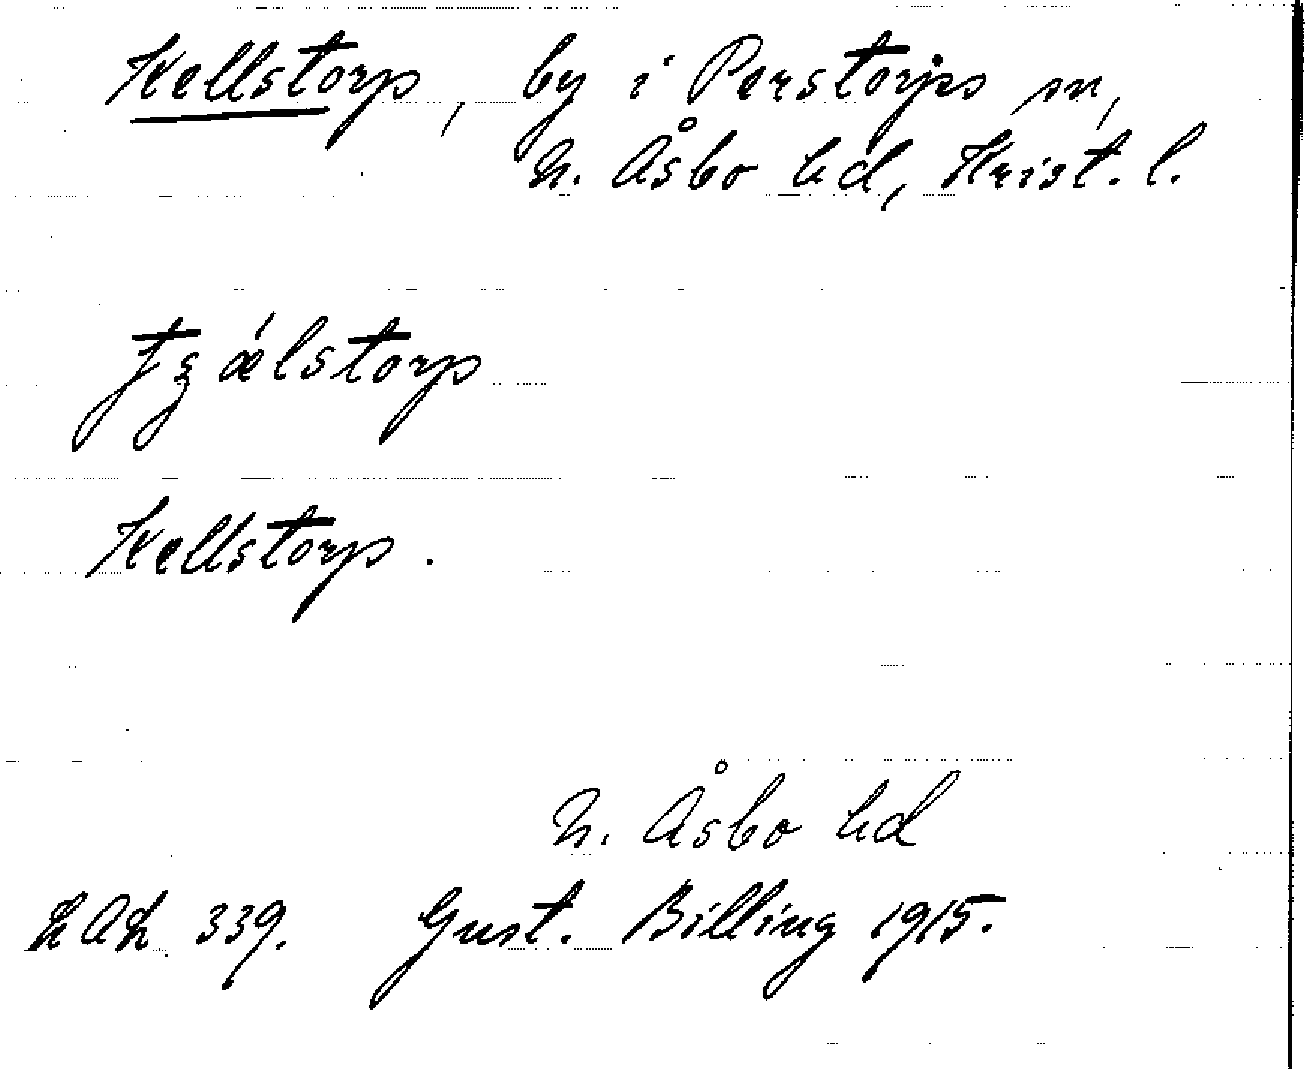 Kellstorp, by i Perstorps sn,
N. Åsbo hd, Krist. l.
tʒǽlstorp
Kellstorp.
N. Åsbo hd
LAL 339. Gust. Billing 1915.